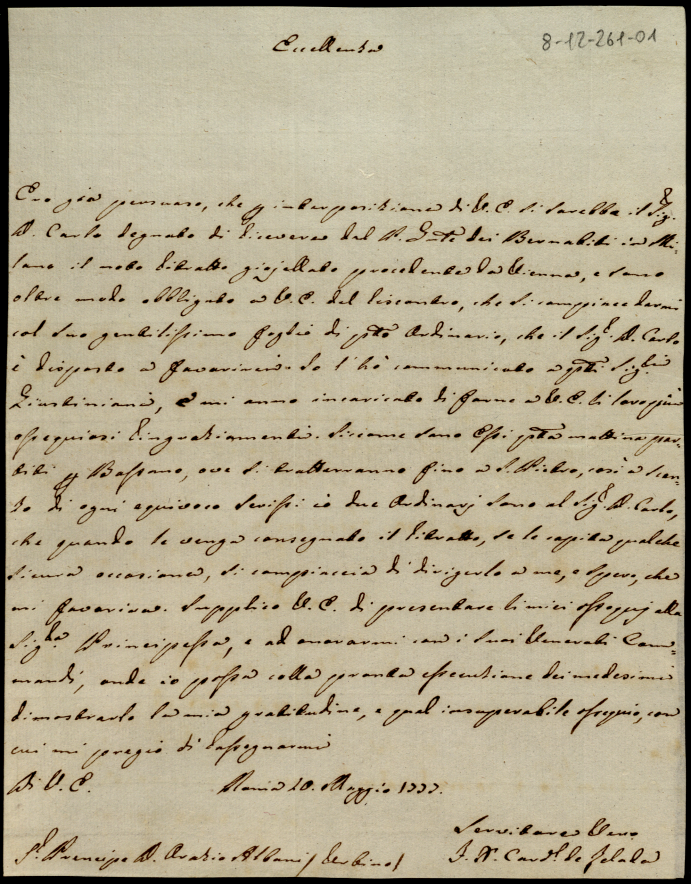 8-12-261-01
Eccellenza
Ero già persuaso, che p interposizione di V. E. si sarebbe il Sig.r
D. Carlo degnato di ricevere dal P. Gnte dei Bernabiti in Mi-
lano il noto ritratto giojellato procedente da Vienna, e sono
oltre modo obbligato a V. E. del riscontro, che si compiace darmi
col suo gentilissimo foglio di pto Ordinario, che il Sig.r D. Carlo
è disposto a favorirci. Io l'hò communicato a pti Sig.ri
Giustiniani, e mi anno incaricato di farne a V. E. li loro più
ossequiosi ringraziamenti. Siccome sono Essi pta mattina par-
titi p Bassano, ove si tratterranno fino a S. Pietro, così a scan-
so di ogni equivoco scrissi io due Ordinarj sono al Sig.r D. Carlo,
che quando le venga consegnato il ritratto, se le capita qualche
sicura occasione, si compiaccia di dirigerlo a me, e spero, che
mi favorirà. Supplico V. E. di presentare li miei ossequj alla
Sig.ra Principessa, e ad onorarmi con i suoi venerati Com-
mandi, onde io possa colla pronta essecutione dei medesimi
dimostrarle la mia gratitudine, e quel insuperabile ossequio, con
cui mi pregio di rassegnarmi
Di V. E. Roma 10. Maggio 1777.
Servitore Vero
S.r Principe D. Orazio Albani / Urbino / F. X. Card. de Zelada